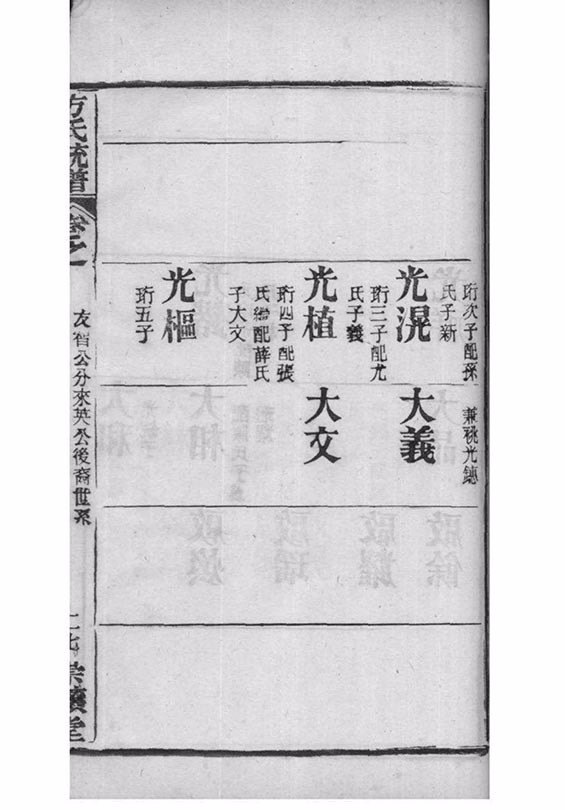 珩次子配孫
氏子新
兼祧光鏸
光滉
珩三子配尤
氏子義
大義
光植
珩四子配張
氏繼配薛氏
子大文
大文
光樞
珩五子
方氏統譜
卷之一
友智公分來英公後裔世系
二七